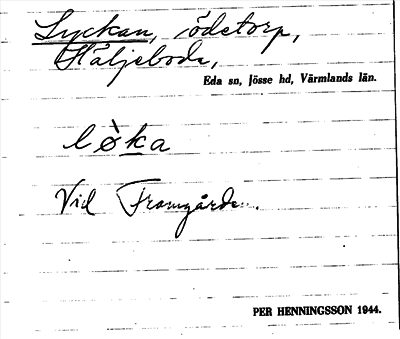 Lyckan, ödetorp,
Häljeboda,
Eda sn, Jösse hd, Värmlands län.
lø̀ka
Vid Framgården.
PER HENNINGSSON 1944.